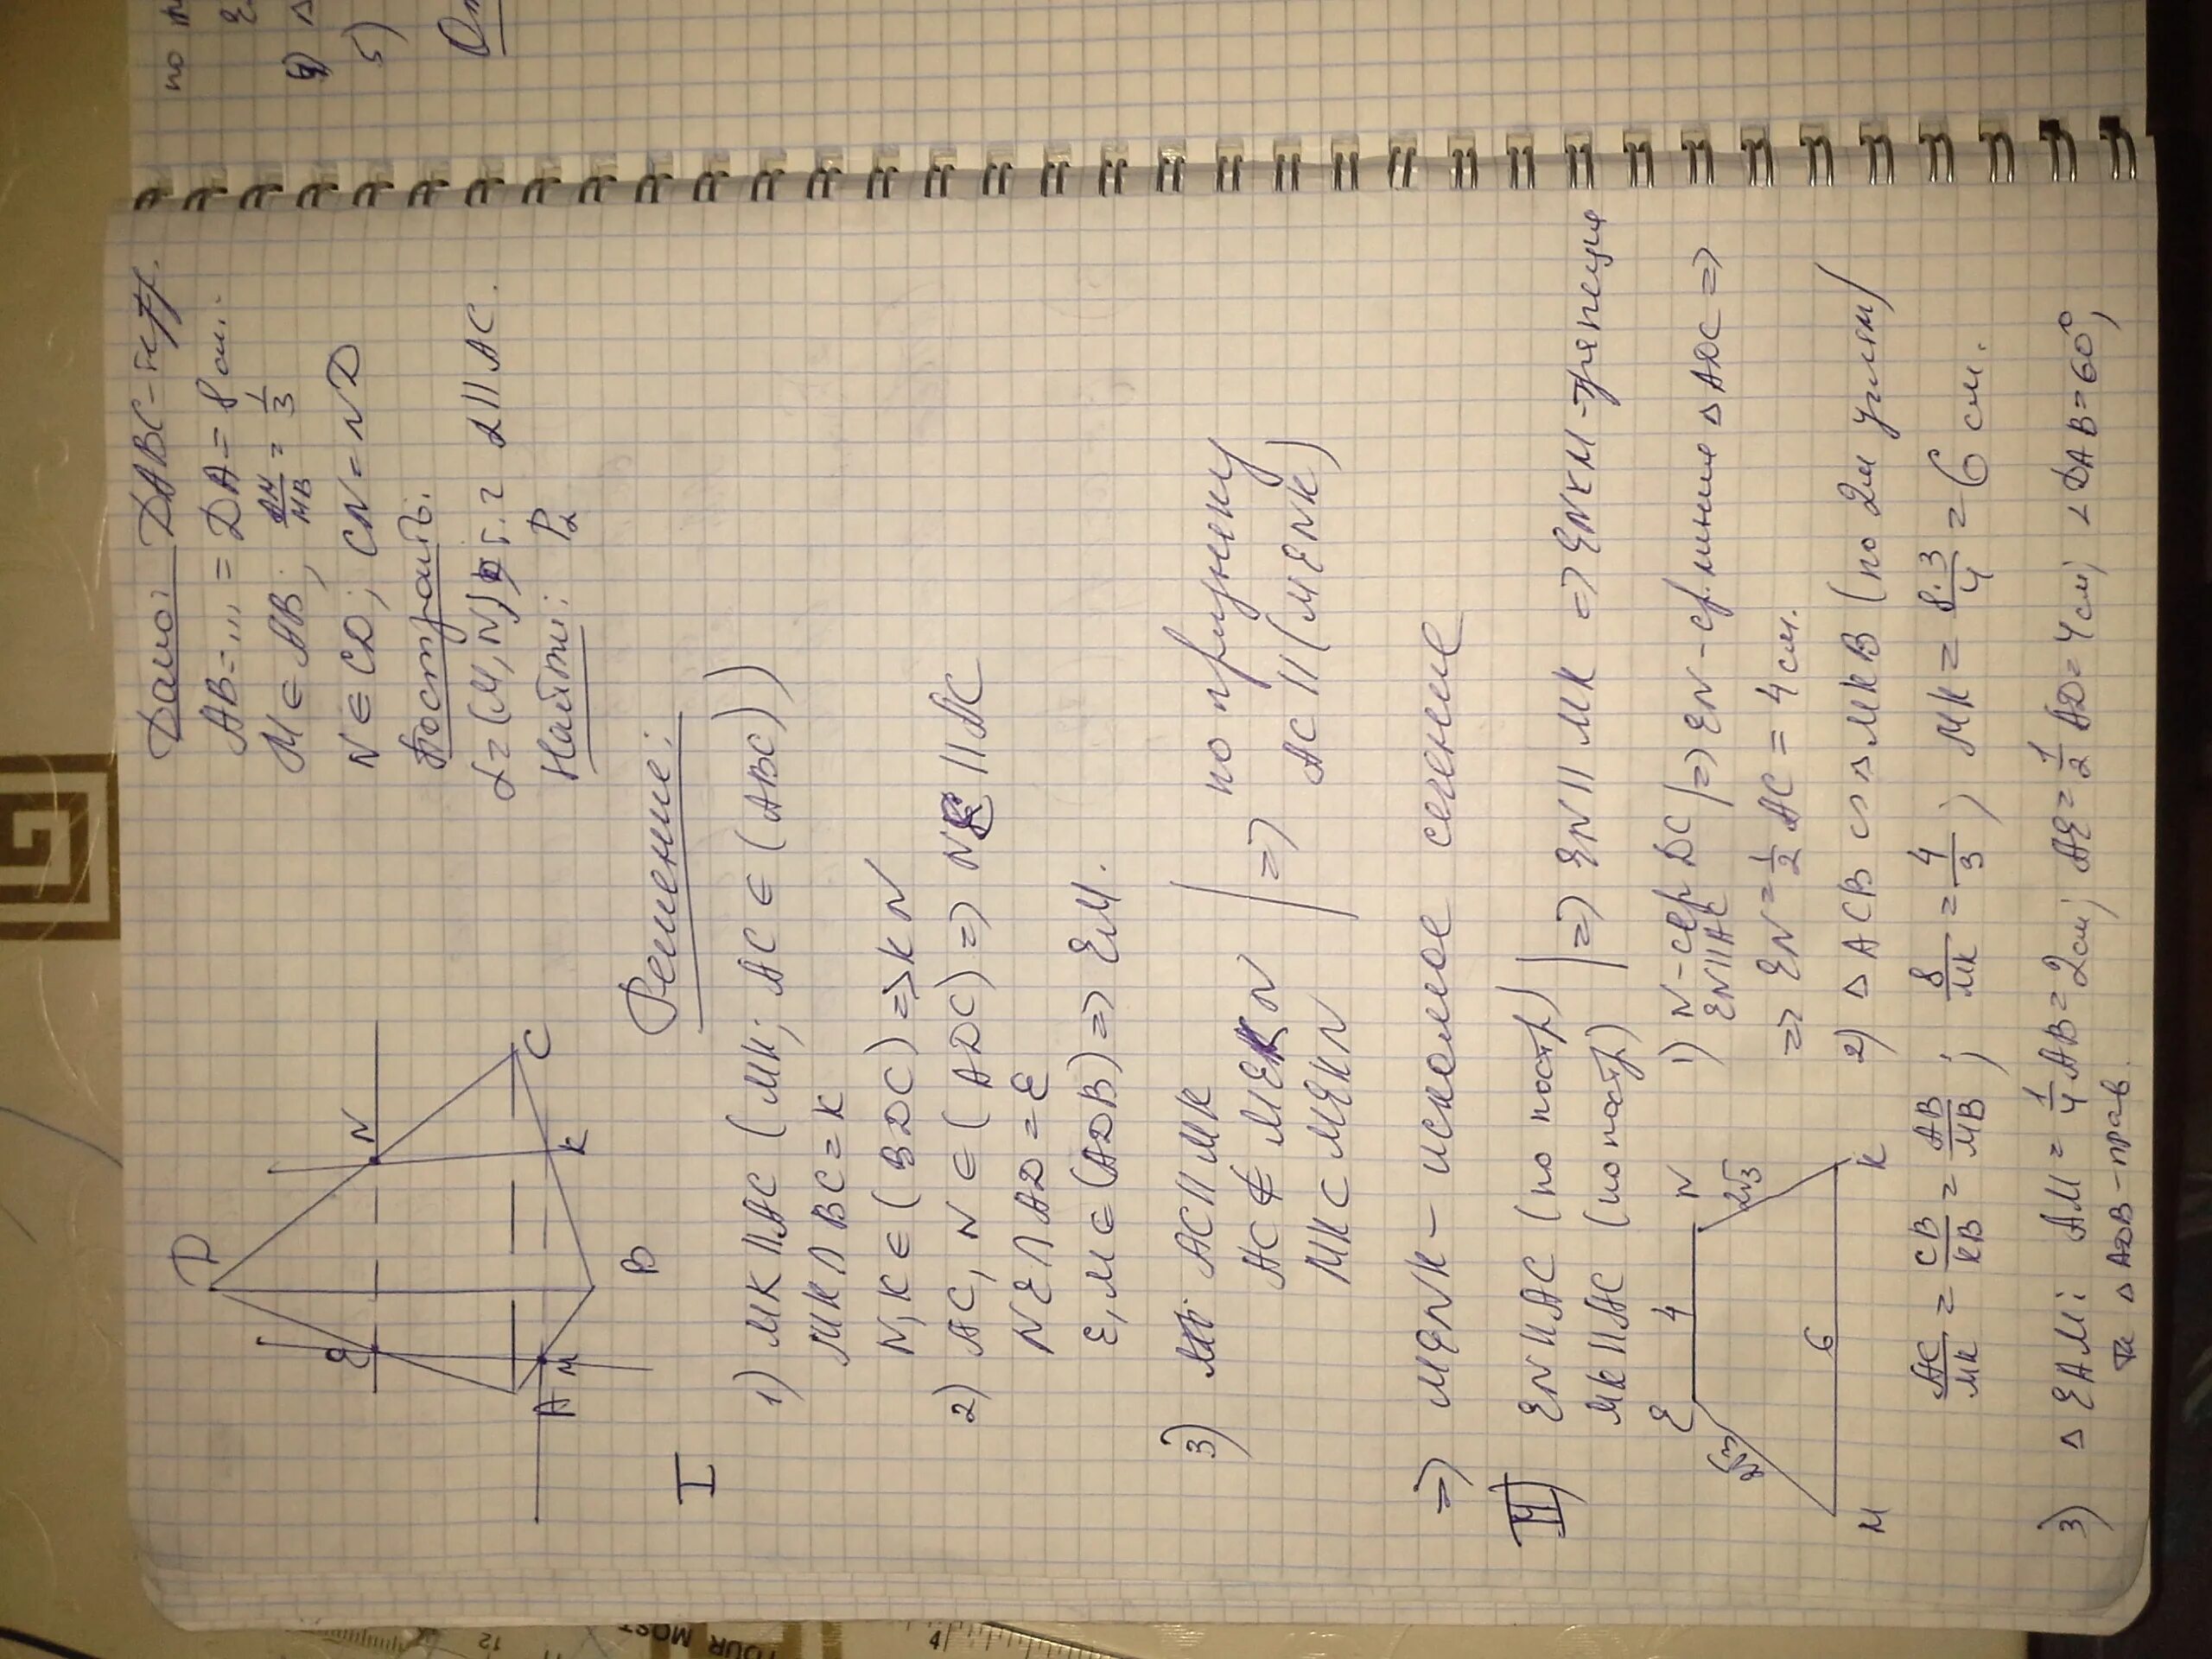 Дано: DABC-тетр.
AB=...=DA=8см.
M∈AB; AM/MB = 1/3
N∈CD; CN=ND
Построить:
α=(M,N) т.г α||AC.
Найти: Pα
D
E
N
A
M
K
C
B
Решение:
I
1) MK||AC (MK; AC∈(ABC))
MK∩BC=K
N,K∈(BDC)=>KN
2) AC,N∈(ADC)=>NE||AC
NE∩AD=E
E,M∈(ADB)=>EM.
3) AC||MK
AC⊄MEKN
MK⊂MEKN
=> по признаку
AC||(MENK)
=> MENK - искомое сечение
II) EN||AC (по постр)
MK||AC (по постр)
=> EN||MK => ENKM-трапеция
E 4 N
2√3
2√3
M 6 K
1) N-сер DC
EN||AC
=> EN-ср.линия ΔADC =>
=> EN=1/2 AC = 4 см.
2) ΔACB ∽ ΔMKB (по 2м углам)
AC/MK = CB/KB = AB/MB ; 8/MK = 4/3 ; MK = 8·3/4 = 6 см.
3) ΔEAM: AM=1/4 AB=2см; AE=1/2 AD=4см; ∠DAB=60°,
ΔADB-прав.
по
4) Δ
5)